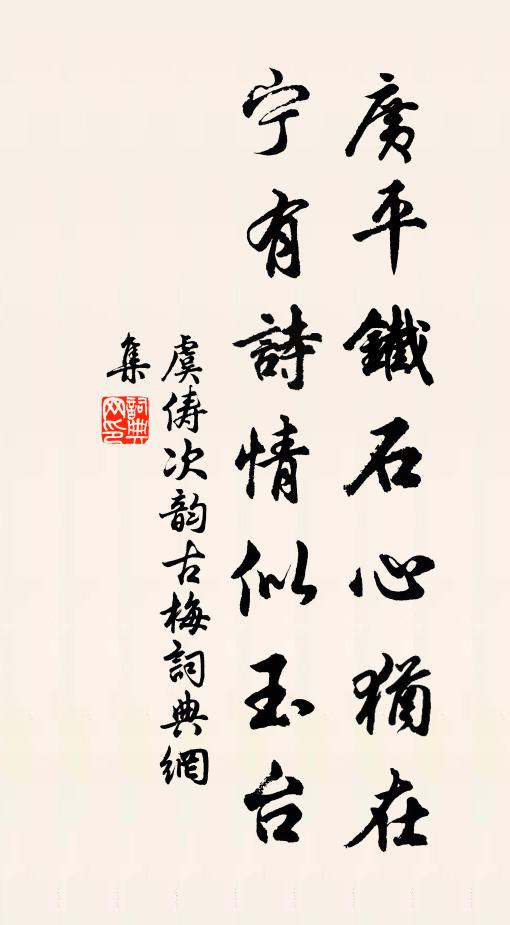 廣平鐵石心猶在
宁有詩情似玉台
虞儔次韵古梅詞典網
集
詞典网印